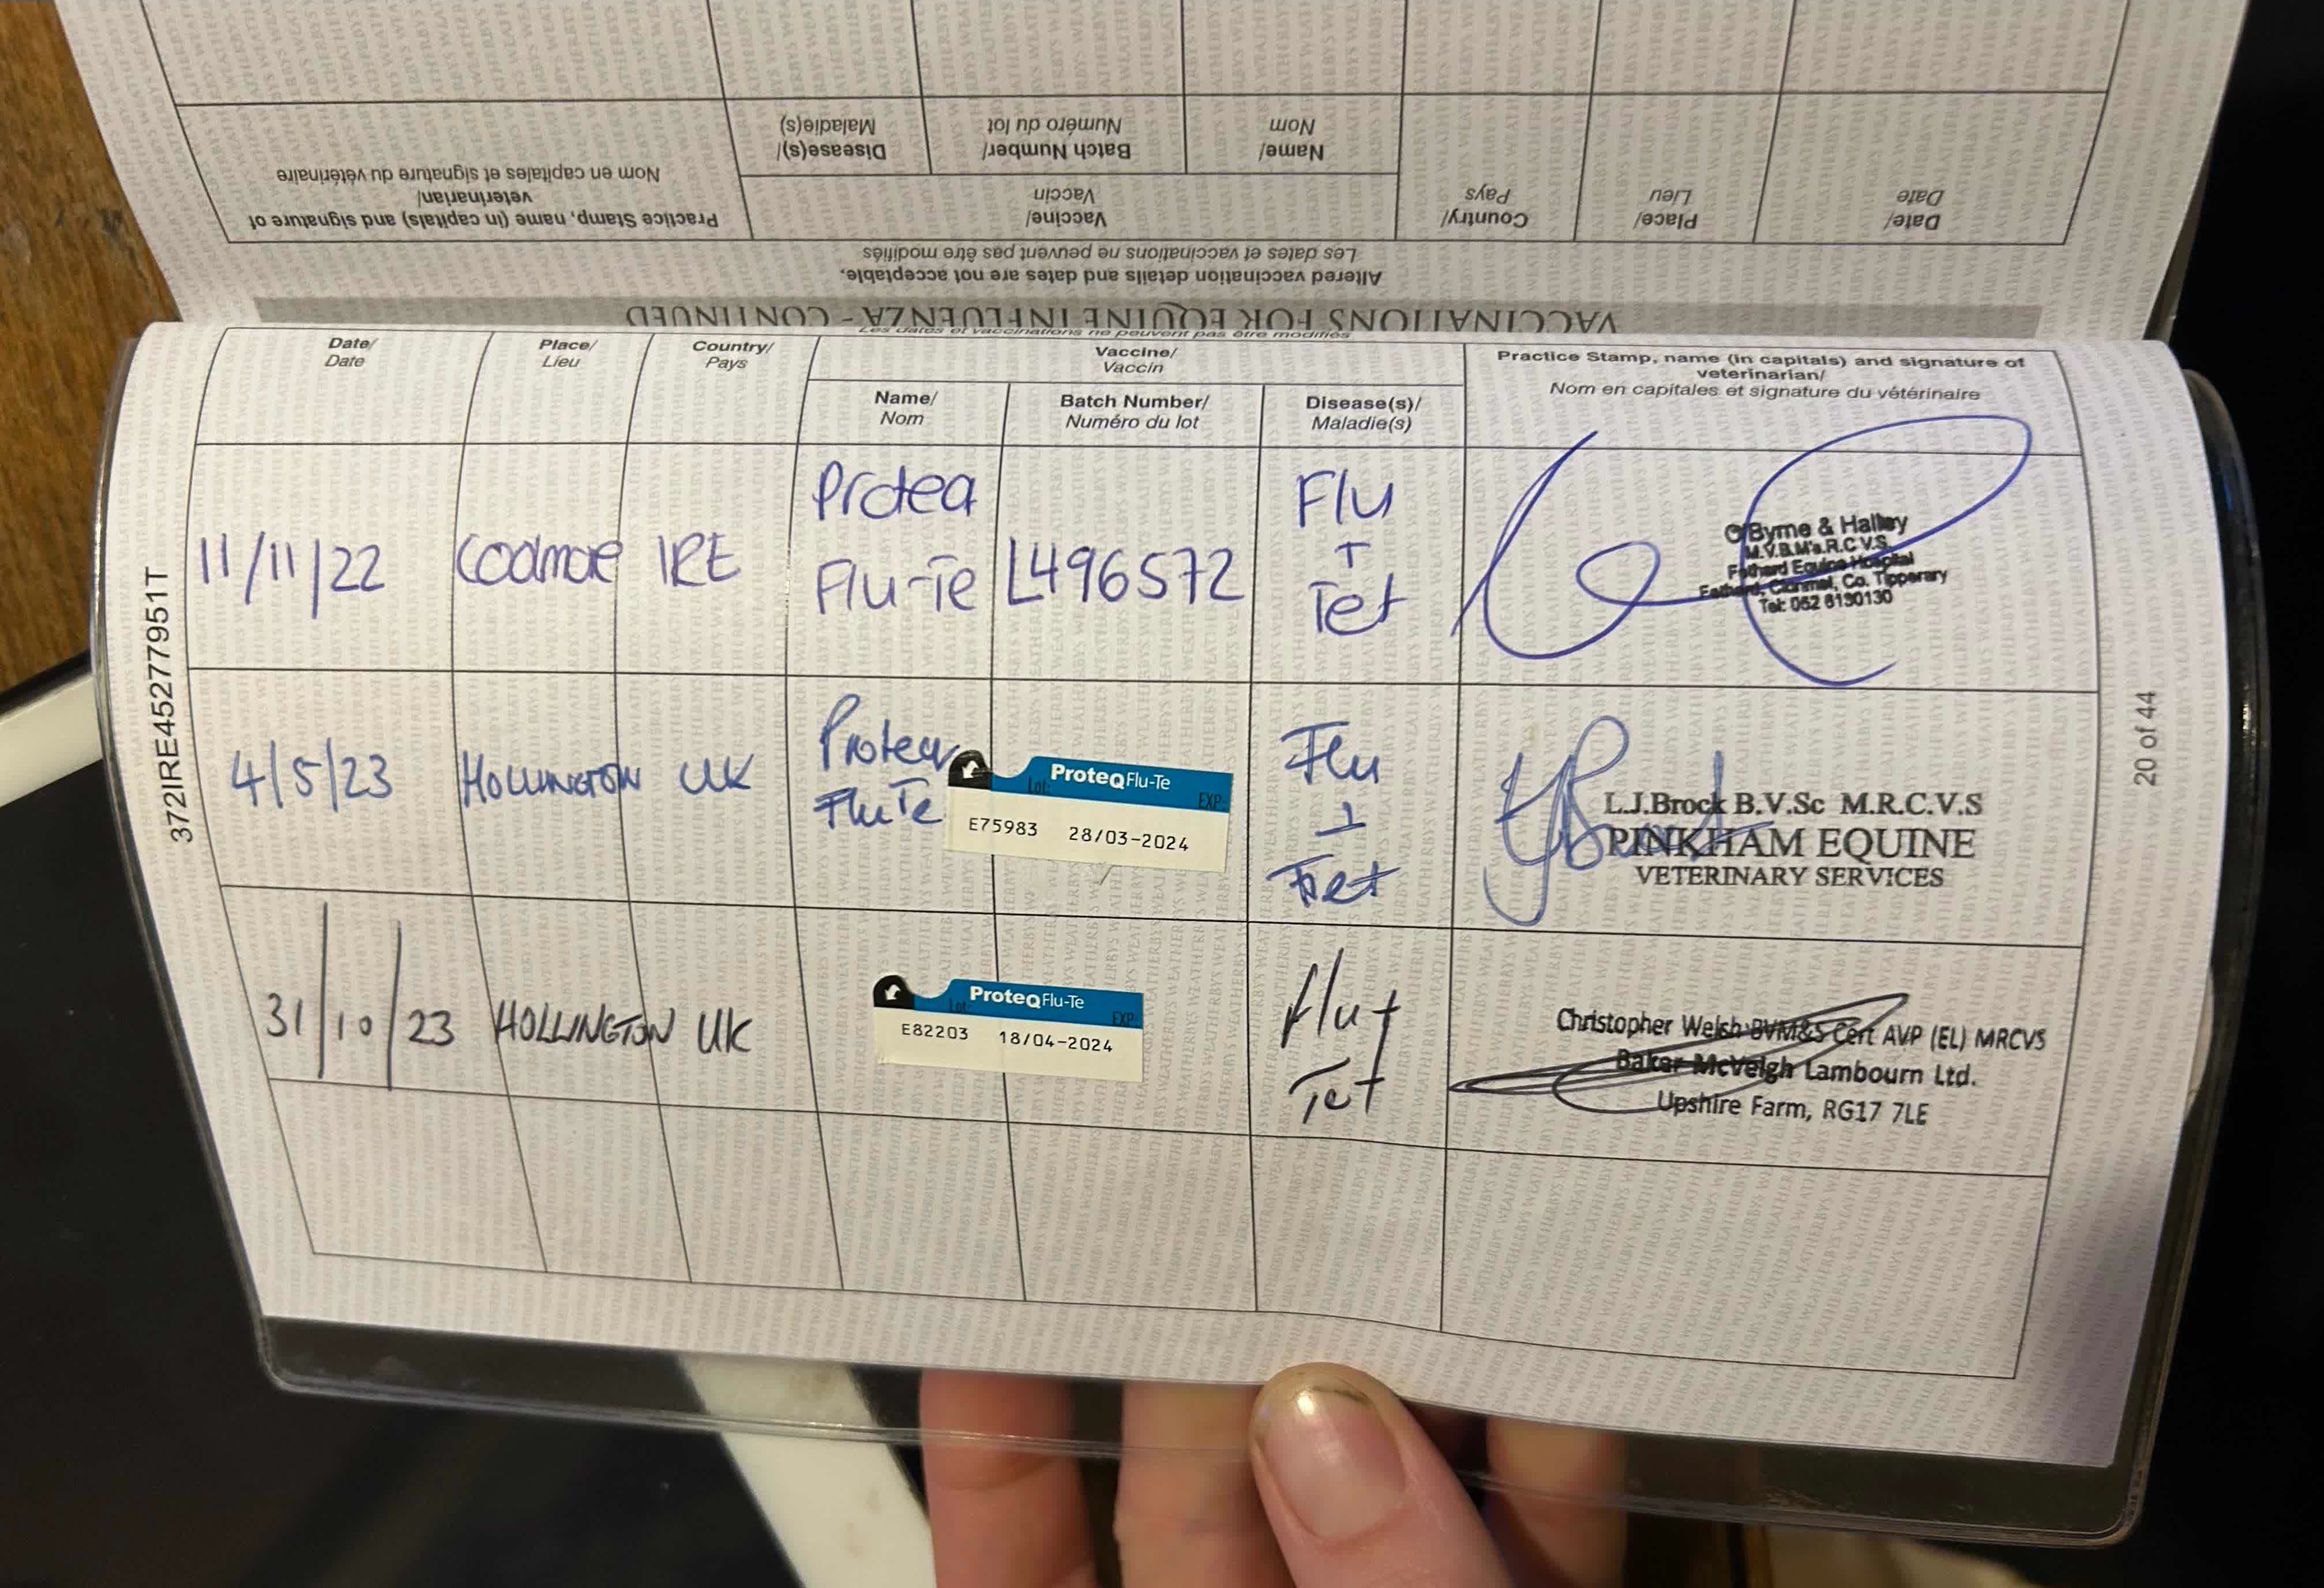 Practice Stamp, name (in capitals) and signature of
veterinarian/
Nom en capitales et signature du vétérinaire
Disease(s)/
Maladie(s)
Batch Number/
Numéro du lot
Name/
Nom
Vaccine/
Vaccin
Country/
Pays
Place/
Lieu
Date/
Date
Altered vaccination details and dates are not acceptable.
Les dates et vaccinations ne peuvent pas être modifiés
VACCINATIONS FOR EQUINE INFLUENZA - CONTINUED
Les dates et vaccinations ne peuvent pas être modifiés
Date/
Date
Place/
Lieu
Country/
Pays
Vaccine/
Vaccin
Name/
Nom
Batch Number/
Numéro du lot
Disease(s)/
Maladie(s)
Practice Stamp, name (in capitals) and signature of
veterinarian/
Nom en capitales et signature du vétérinaire
11/11/22
IRE
Flu-Te
L496572
Flu
+
Tet
O'Byrne & Halley
M.V.B.M's.R.C.V.S.
Fethard Equine Hospital
Fethard, Clonmel, Co. Tipperary
Tel: 052 6130130
4/5/23
HOLLINGTON
UK
FluTe
ProteqFlu-Te
Lot:
EXP:
E75983 28/03-2024
Flu
+
Tet
L.J.Brock B.V.Sc M.R.C.V.S
PINKHAM EQUINE
VETERINARY SERVICES
31/10/23
HOLLINGTON
UK
ProteqFlu-Te
Lot:
EXP:
E82203 18/04-2024
Flu +
Tet
Christopher Welsh BVM&S Cert AVP (EL) MRCVS
Baker McVeigh Lambourn Ltd.
Upshire Farm, RG17 7LE
372IRE452777951T
20 of 44